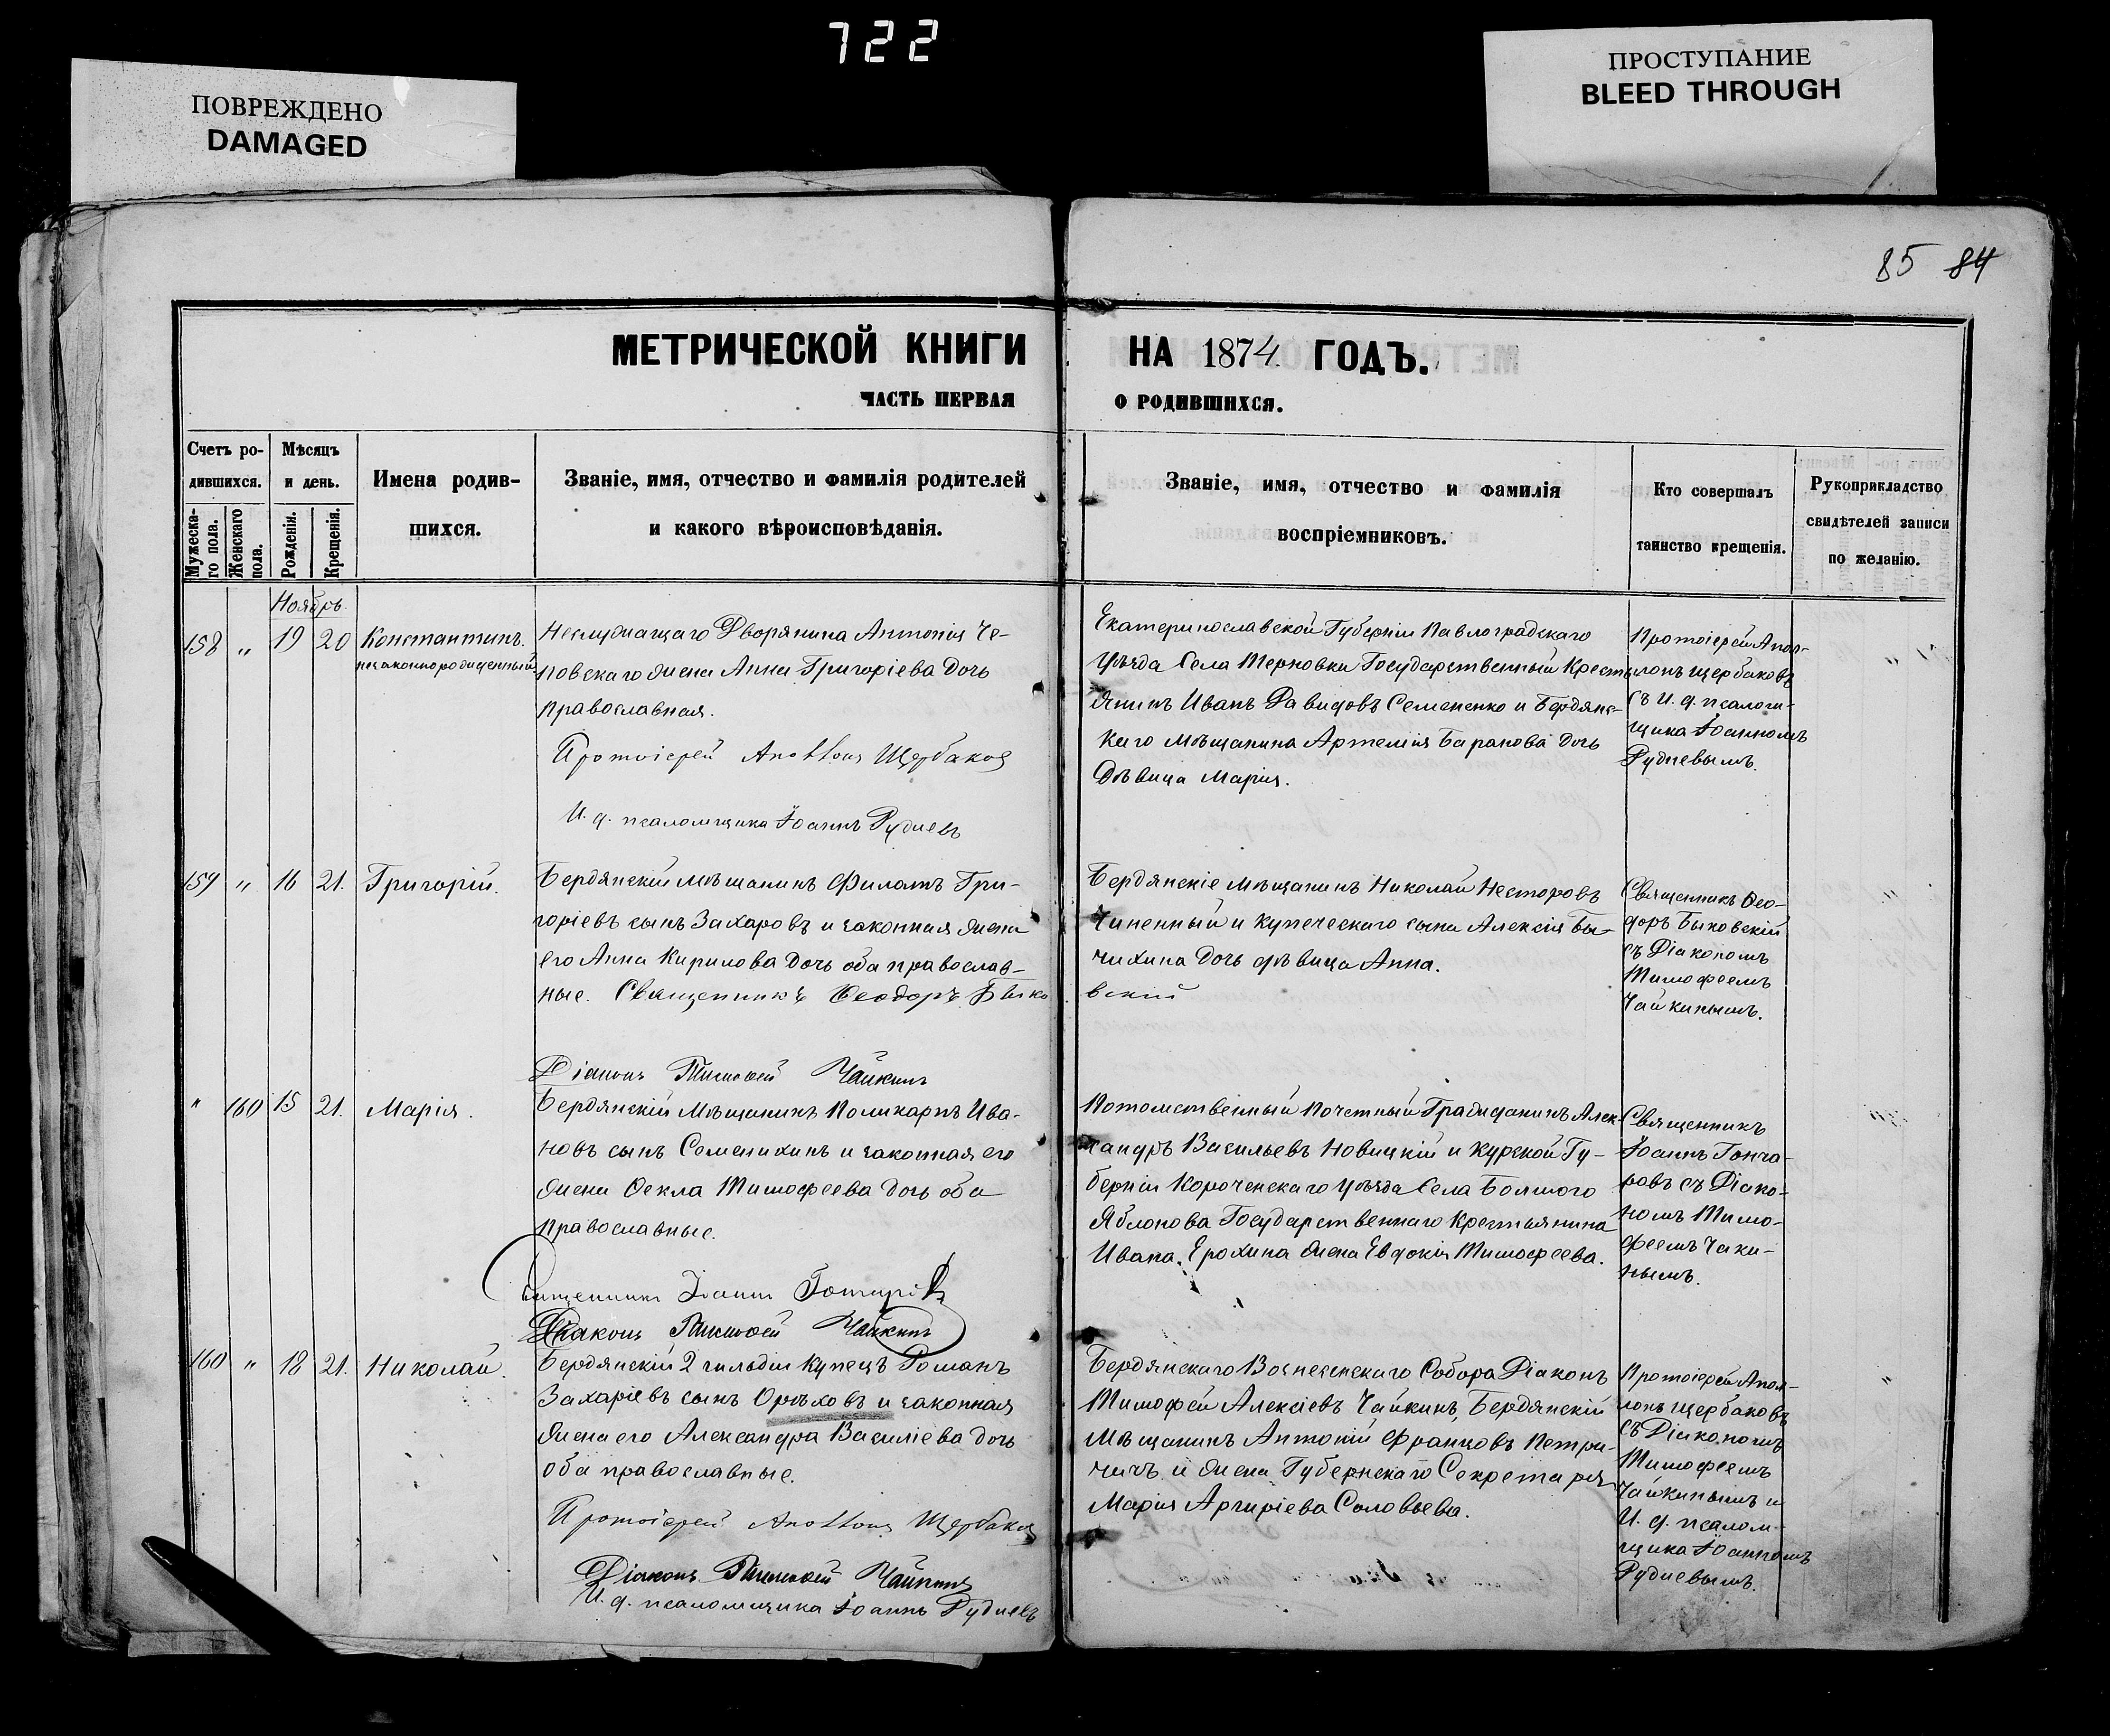 722
ПОВРЕЖДЕНО
DAMAGED
ПРОСТУПАНИЕ
BLEED THROUGH
85 84
МЕТРИЧЕСКОЙ КНИГИ НА 1874 ГОДЪ.
ЧАСТЬ ПЕРВАЯ О РОДИВШИХСЯ.
Счетъ ро-
дившихся.
Мужеска-
го пола.
Женскаго
пола.
Мѣсяцъ
и день.
Рожденія.
Крещенія.
Имена родив-
шихся.
Званіе, имя, отчество и фамилія родителей
и какого вѣроисповѣданія.
Званіе, имя, отчество и фамилія
воспріемниковъ.
Кто совершалъ
таинство крещенія.
Рукоприкладство
свидѣтелей записи
по желанію.
Ноябрь.
158 " 19 20 Константинъ.
незаконнорожденный
Неслужащаго Дворянина Антонія Че-
повскаго жена Анна Григоріева дочь
православная.
Протоіерей Аполлонъ Щербаковъ
И. д. псаломщика Іоаннъ Рудневъ
Екатеринославской Губерніи Павлоградскаго
Уѣзда Села Терновки Государственный Кресть-
янинъ Иванъ Давидовъ Семененко и Бердянс-
каго Мѣщанина Артемія Баранова дочь
дѣвица Марія.
Протоіерей Апол-
лонъ Щербаковъ
съ И. д. псалом-
щика Іоанномъ
Рудневымъ.
159 " 16 21. Григорій.
Бердянскій мѣщанинъ Филатъ Гри-
горіевъ сынъ Захаровъ и законная жена
его Анна Кирилова дочь оба православ-
ные. Священникъ Ѳеодоръ Быковскій
Діаконъ Тимофей Чайкинъ
Бердянскіе мѣщанинъ Николай Несторовъ
Чиненный и купеческаго сына Алексія Бы-
чихина дочь дѣвица Анна.
Священникъ Ѳео-
доръ Быковскій
съ Діакономъ
Тимофеемъ
Чайкинымъ.
" 160 15 21. Марія.
Бердянскій Мѣщанинъ Поликарпъ Ива-
новъ сынъ Семенихинъ и законная его
жена Ѳекла Тимофеева дочь оба
православные.
Священникъ Іоаннъ Гончаровъ
Діаконъ Тимофей Чайкинъ
Потомственный Почетный Гражданинъ Алек-
сандръ Васильевъ Новицкій и Курской Гу-
берніи Короченскаго Уѣзда Села Болшого
Яблонова Государственнаго Крестьянина
Ивана Ерохина жена Евдокія Тимофеева.
Священникъ
Іоаннъ Гонча-
ровъ съ Діако-
номъ Тимо-
феемъ Чаки-
нымъ.
160 " 18 21. Николай.
Бердянскій 2 гильдіи Купецъ Романъ
Захаріевъ сынъ Орѣховъ и законная
жена его Александра Василіева дочь
оба православные.
Протоіерей Аполлонъ Щербаковъ
Діаконъ Тимофей Чайкинъ
И. д. псаломщика Іоаннъ Рудневъ
Бердянскаго Вознесенскаго Собора Діаконъ
Тимофей Алексіевъ Чайкинъ, Бердянскій
Мѣщанинъ Антоній Францовъ Петри-
чичъ и жена Губернскаго Секретаря
Марія Аргиріева Соловьева.
Протоіерей Апол-
лонъ Щербаковъ
съ Діакономъ
Тимофеемъ
Чайкинымъ и
И. д. псалом-
щика Іоанномъ
Рудневымъ.